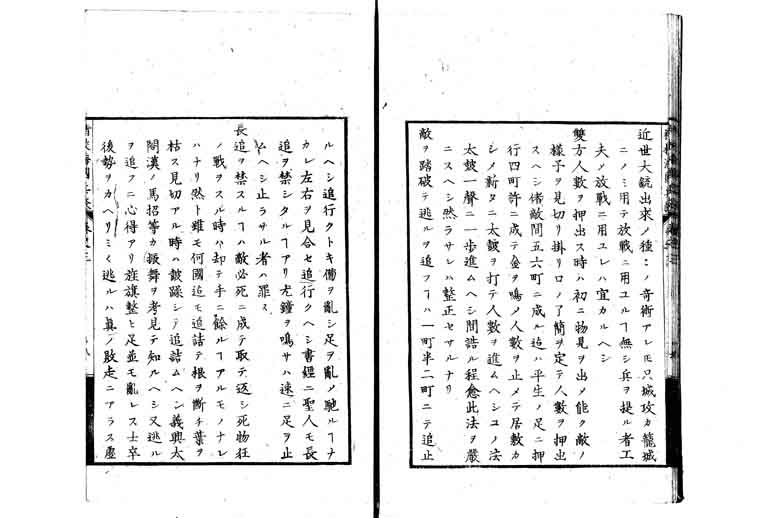 近世大銃出求ノ種〻ノ奇術アレ𪜈只城攻カ籠城
ニノミ用テ放戰ニ用ユルヿ無シ兵ヲ提ル者工
夫ノ放戰ニ用ユレハ宜カルヘシ
雙方人數ヲ押出ス時ハ初ニ物見ヲ出メ能ク敵ノ
樣子ヲ見切リ掛リ口ノ了簡ヲ定テ人數ヲ押出
スヘシ偖敵間五六町ニ成ル迠ハ平生ノ足ニ押
行四町許ニ成テ金ヲ鳴メ人數ヲ止メテ居敷カ
シメ斬タニ太皷ヲ打テ人數ヲ進ムヘシコノ法
太皷一聲ニ一歩進ムヘシ間詰ル程愈此法ヲ嚴
ニスヘシ然ラサレハ整正セサルナリ
敵ヲ踏破テ逃ルヲ追フヿハ一町半二町ニテ追止
ルヘシ追行クトキ備ヲ亂シ足ヲ亂メ馳ルヿナ
カレ左右ヲ見合セ追行クヘシ書經ニ聖人モ長
追ヲ禁シタルヿアリ尤鐘ヲ鳴サハ速ニ足ヲ止
ムヘシ止ラサル者ハ罪ス
長追ヲ禁スルヿハ敵必死ニ成テ取テ返シ死物狂
ノ戰ヲスル時ハ却テ手ニ餘ルヿアルモノナレ
ハナリ然ト雖モ何國迠モ追詰テ根ヲ斷チ葉ヲ
枯ス見切アル時ハ皷譟シテ追詰ムヘシ義興太
閤漢ノ馬招等カ振舞ヲ考見テ知ルヘシ又逃ル
ヲ追フニ心得アリ旌旗整ヒ足並モ亂レス士卒
後勢ヲカヘリミ〱逃ルハ真ノ敗走ニアラス塵